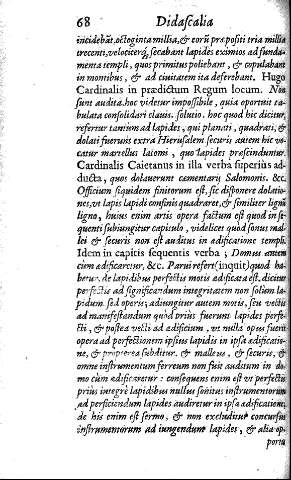 68 Didascalia
incidebāt, octoginta millia, & eorū præpositi tria millia
trecenti, velociterq; secabant lapides eximios ad funda-
menta templi, quos primitus poliebant, & copulabant
in montibus, & ad ciuitatem ita deferebant. Hugo
Cardinalis in prædictum Regum locum. Non
sunt audita. hoc videtur impossibile, quia oportuit ta-
bulata consolidari clauis. solutio. hoc quod hic dicitur,
refertur tantum ad lapides, qui planati, quadrati, &
dolati fuerunt extra Hierusalem securis autem hic vo-
catur martellus latomi, quo lapides præscinduntur.
Cardinalis Caietanus in illa verba superius ad-
ducta, quos dolauerunt cæmentarij Salomonis. &c.
Officium siquidem finitorum est, sic disponere dolatio-
nes, vt lapis lapidi consonis quadraret, & similiter lignū
ligno, huius enim artis opera factum est quod in se-
quenti subiungitur capitulo, videlicet quod sonus mal-
lei & securis non est auditus in ædificatione templi.
Idem in capitis sequentis verba; Domus autem
cùm ædificaretur, &c. Parui refert (inquit) quod ha-
betur. de lapidibus perfectis motis ædificata est. dicitur
perfectis ad significandum integritatem non solùm la-
pidum. sed operis; adiungitur autem motis, seu vectis
ad manifestandum quòd prius fuerunt lapides perfe-
cti, & postea vecti ad ædificium, vt nulla opus fuerit
opera ad perfectionem ipsius lapidis in ipsa ædificatio-
ne, & propterea subditur. & malleus, & securis, &
omne instrumentum ferreum non fuit auditum in do-
mo cùm ædificaretur: consequens enim est vt perfectis
prius integrè lapidibus nullus sonitus instrumentorum
ad perficiendum lapides audiretur in ipsa ædificatione,
de his enim est sermo, & non excluditur concursus
instrumentorum ad iungendum lapides, & alia op-
portu